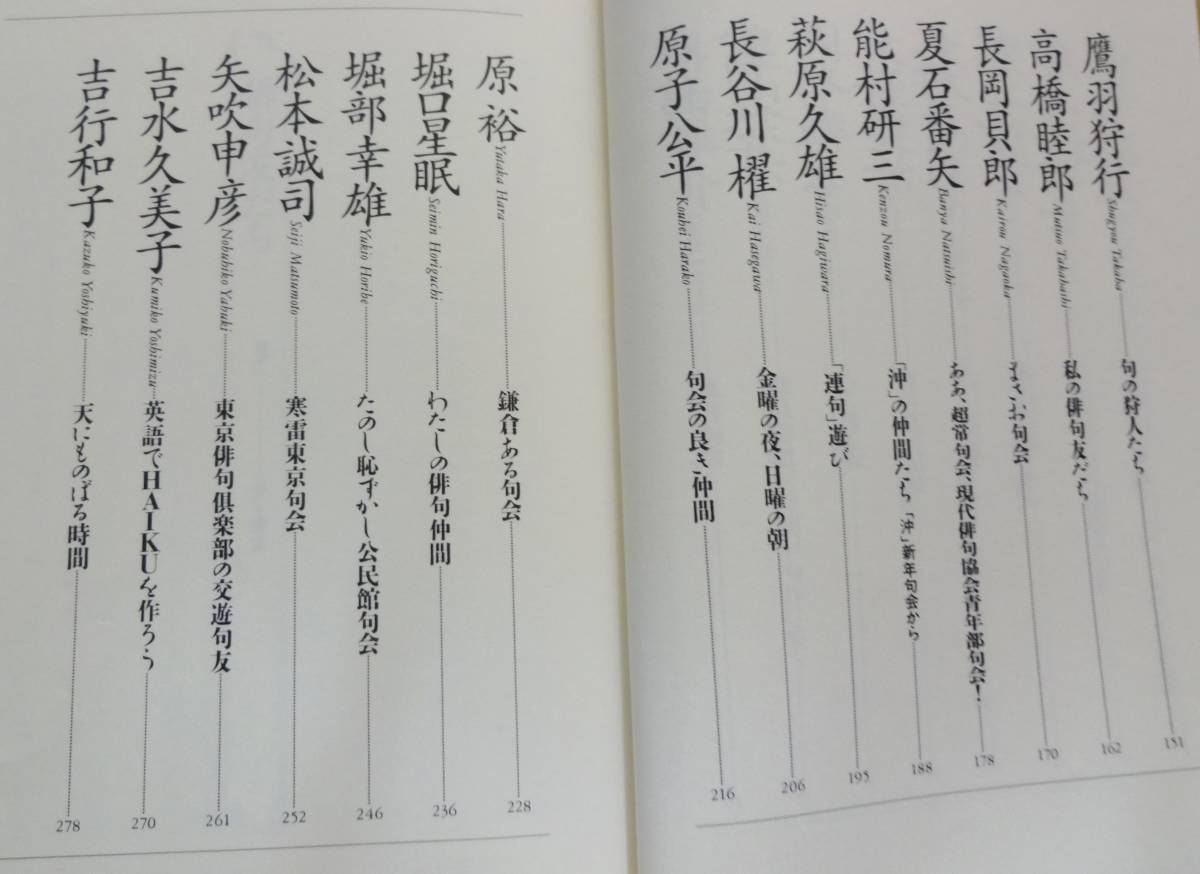 鷹羽狩行 Sougyou Takaba 句の狩人たち 151
高橋睦郎 Mutsuo Takahashi 私の俳句友だち 162
長岡貝郎 Kairou Nagaoka まさお句会 170
夏石番矢 Banya Natsuishi ああ、超常句会、現代俳句協会青年部句会！ 178
能村研三 Kenzou Nomura 「沖」の仲間たち 「沖」新年句会から 188
萩原久雄 Hisao Hagiwara 「連句」遊び 195
長谷川櫂 Kai Hasegawa 金曜の夜、日曜の朝 206
原子公平 Kouhei Harako 句会の良き仲間 216
原裕 Yutaka Hara 鎌倉ある句会 228
堀口星眠 Seimin Horiguchi わたしの俳句仲間 236
堀部幸雄 Yukio Horibe たのし恥ずかし公民館句会 246
松本誠司 Seiji Matsumoto 寒雷東京句会 252
矢吹申彦 Nobuhiko Yabuki 東京俳句倶楽部の交遊句友 261
吉水久美子 Kumiko Yoshimizu 英語でHAIKUを作ろう 270
吉行和子 Kazuko Yoshiyuki 天にものぼる時間 278